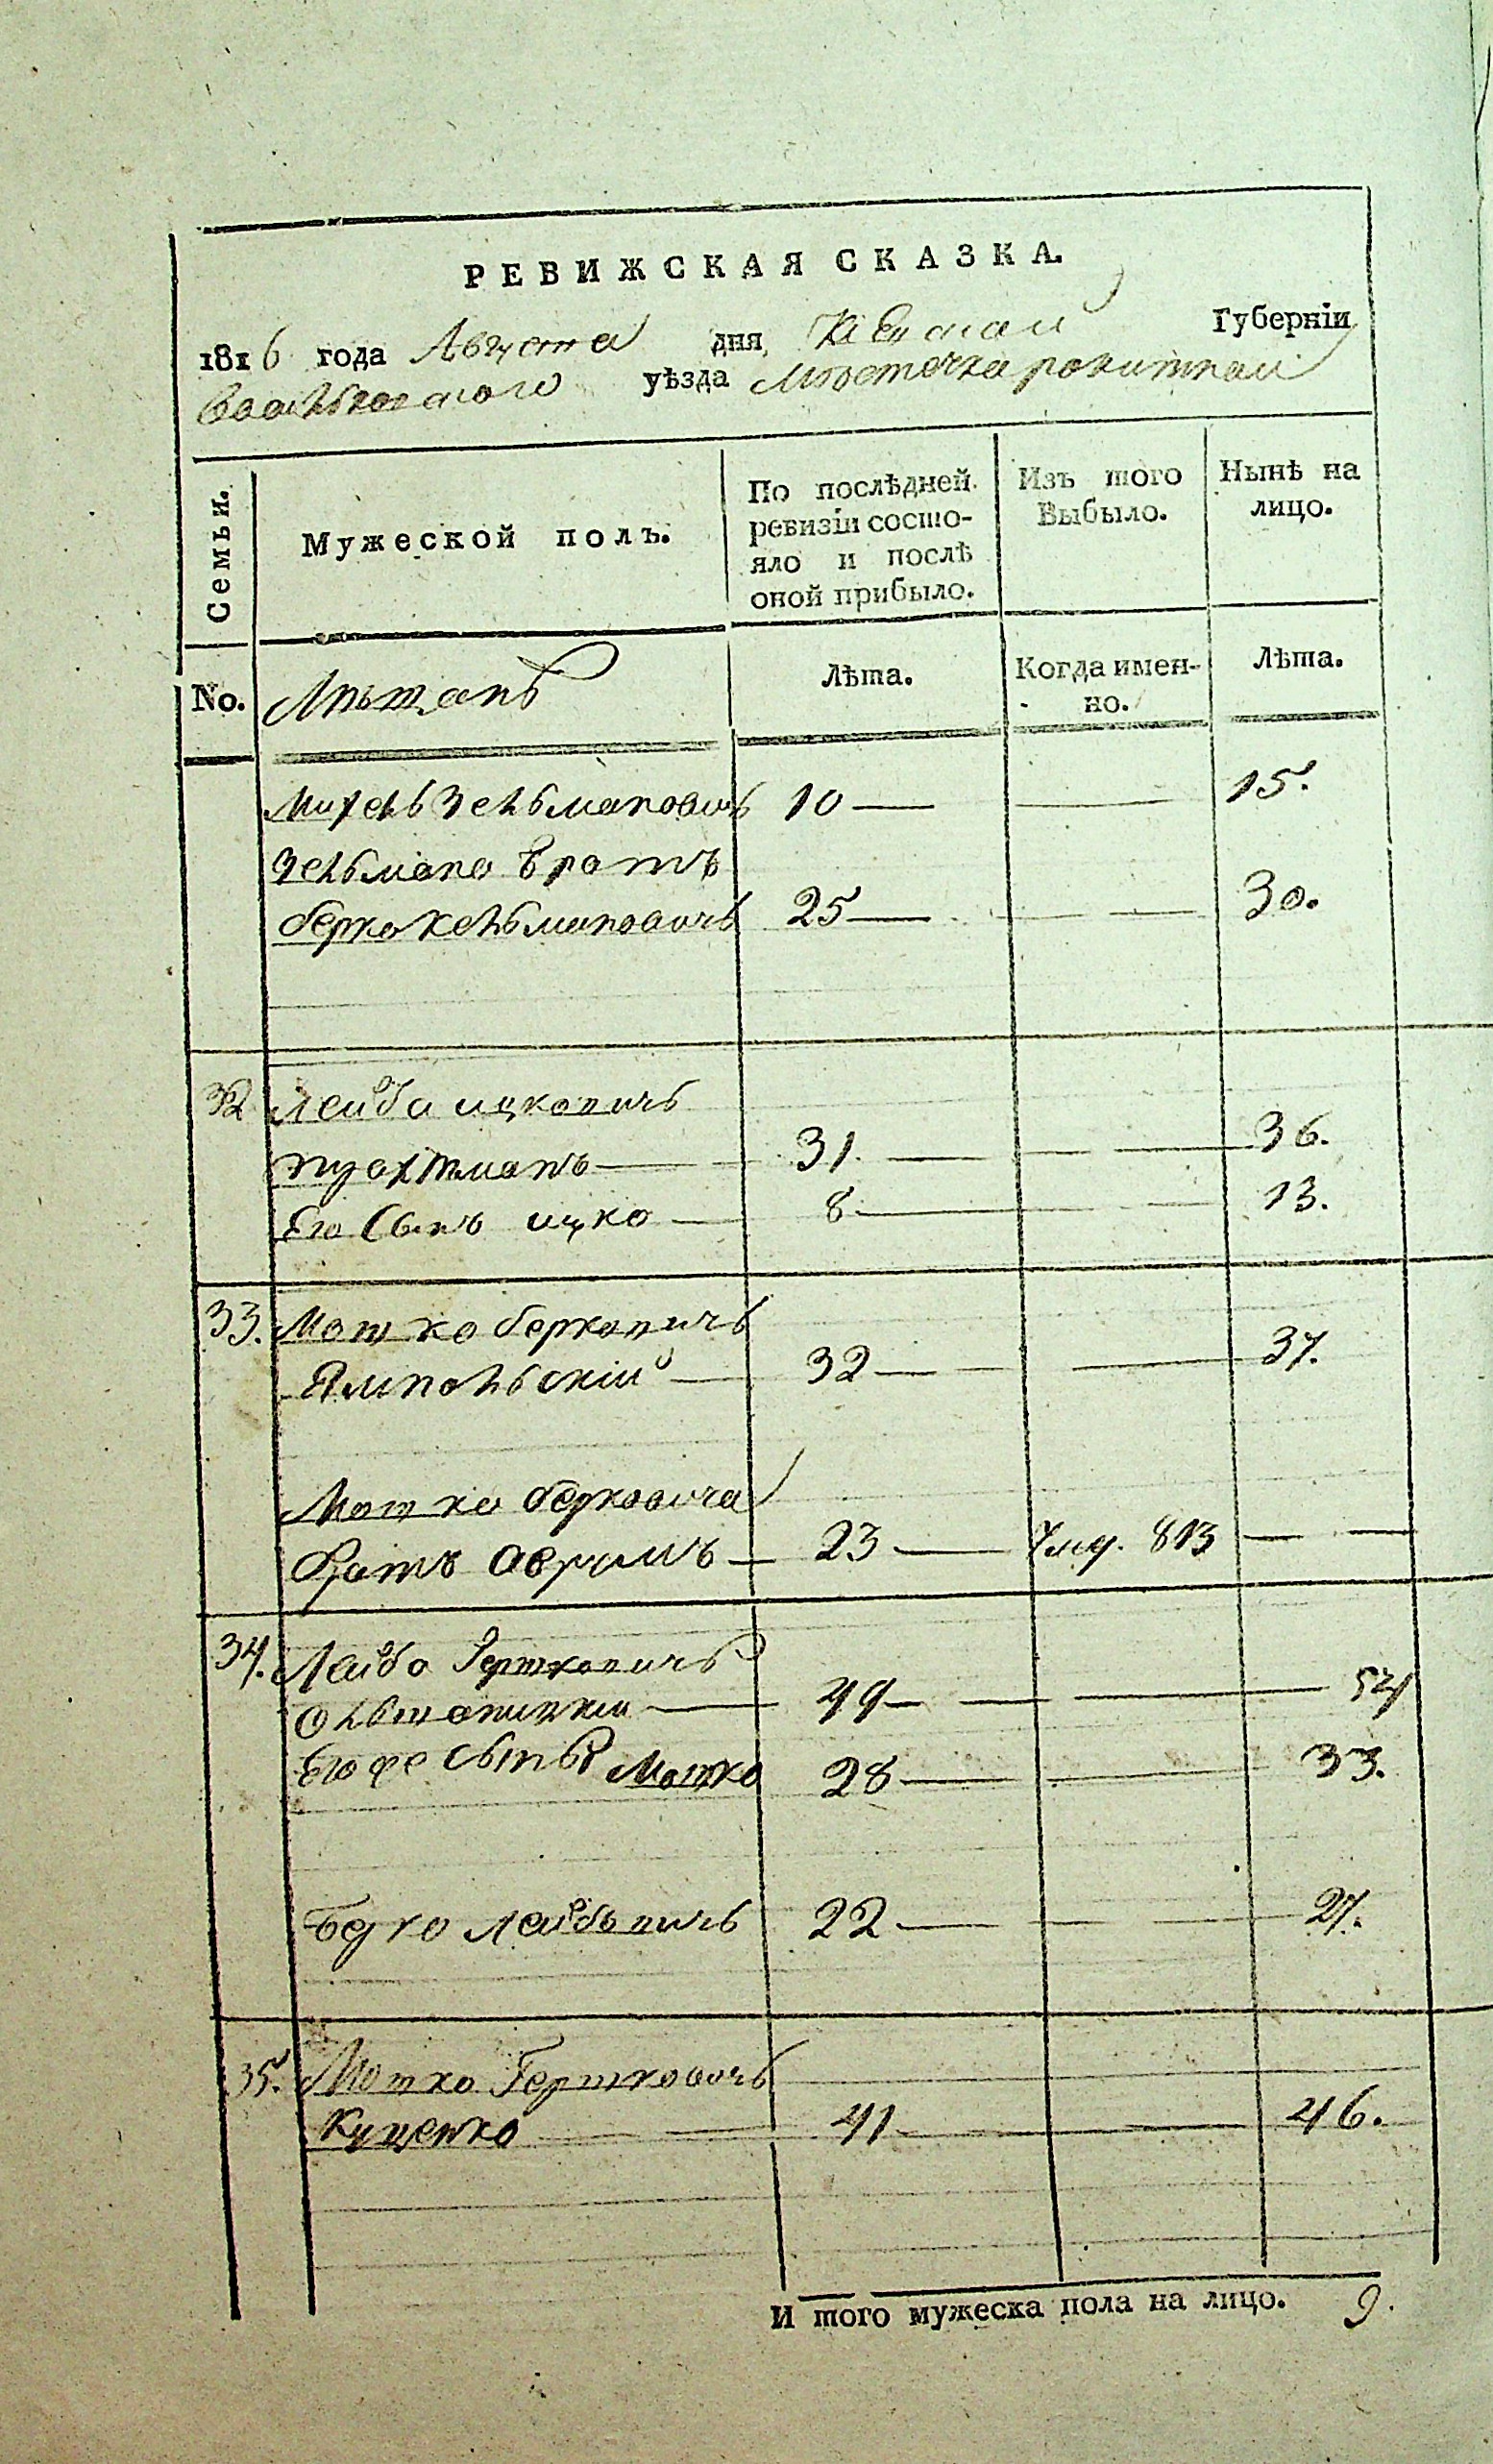 РЕВИЖСКАЯ СКАЗКА.
1816 года Августа дня, Кіевской Губерніи
Васильковского уѣзда Местечка рокитной
Семьи. Мужеской полъ. По послѣдней ревизіи состояло и послѣ оной прибыло. Изъ того Выбыло. Нынѣ на лицо.
No. Лѣта. Когда именно. Лѣта.
Михель Зельмановичь 10 — — 15.
Зельмана братъ
берко Хельмановичь 25 — — 30.
32 Лейба ицковичь
31. — — 36.
Его Сынъ ицко — 8 — — 13.
33. Мошко берковичь
Ямпольскій — 32 — — 37.
Мошка берковича
братъ аврумъ — 23 — Умер. 813 — —
34. Лейба Гершковичь
Ольшаницкій — 49 — — 54
Его же Сынъ Мошко 28 — — 33.
Берко Лейбовичь 22 — — 27.
35. Мошко Гершковичь
Куценко — 41 — — 46.
И того мужеска пола на лицо. 9.